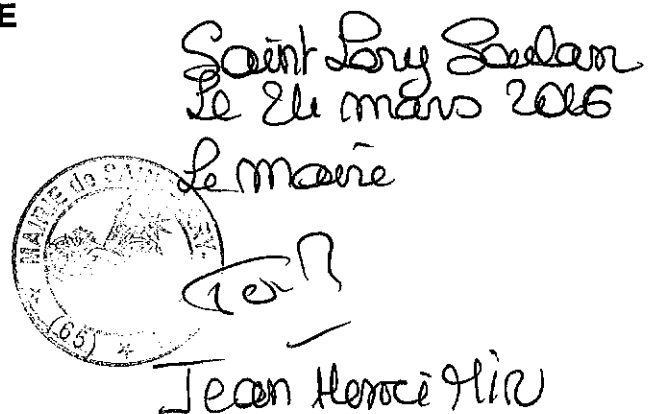 E
Saint Lary Soulan
Le 24 mars 2016
Le Maire
MAIRIE de SAINT-LARY
(65)
Jean Henri Mir